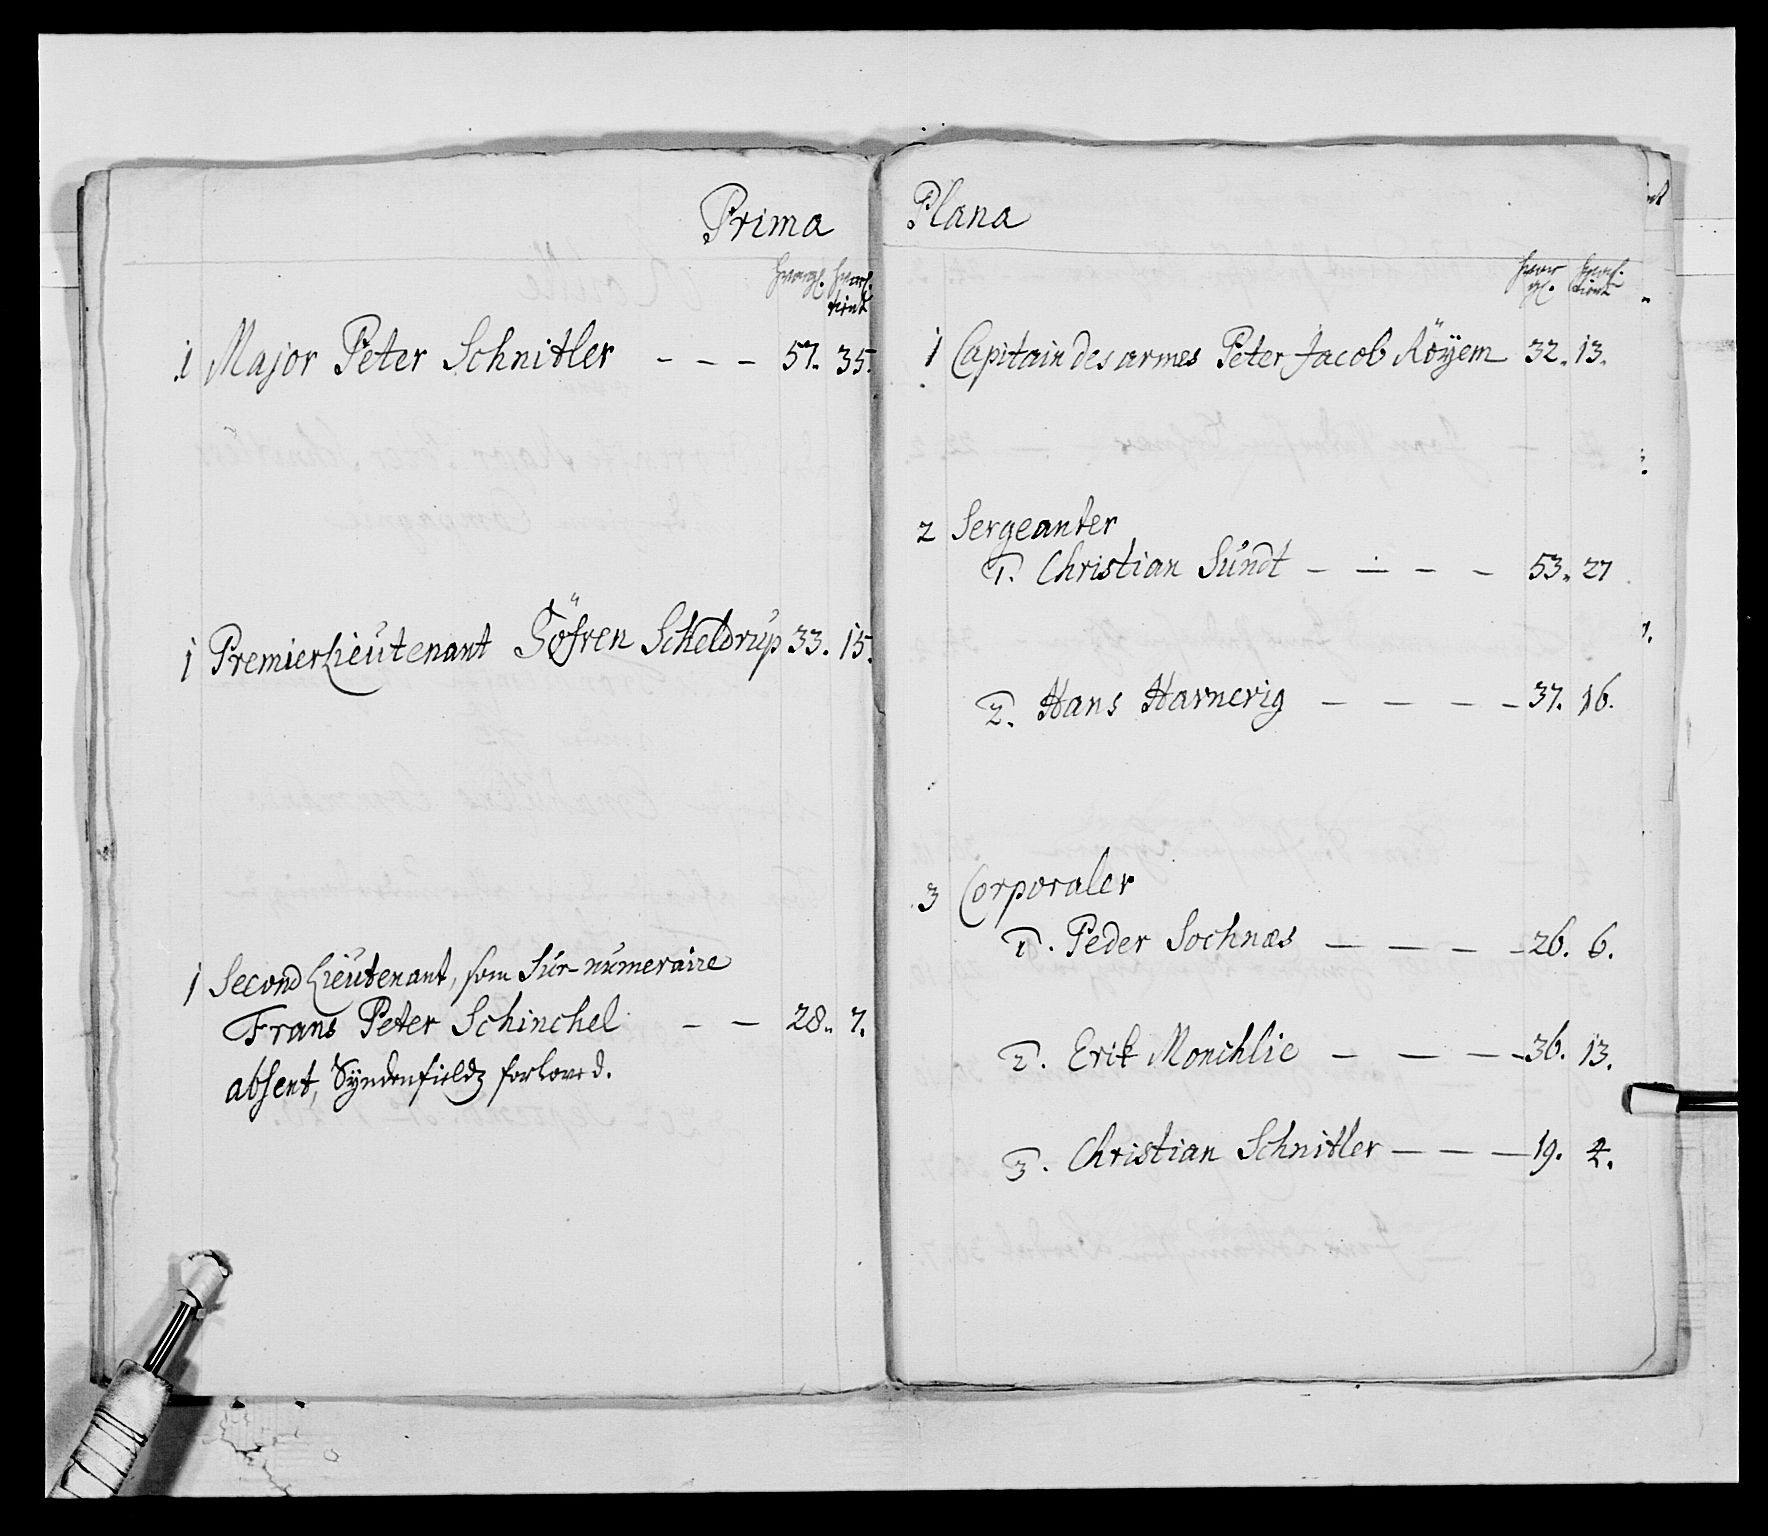 Prima
hvor gl. hvorl. tient
1 Major Peter Schnitler - - - 57. 35.
1 PremierLieutenant Söfren Scheldrup 33. 15.
1 SecondLieutenant, som Sur-numeraire
Frans Peter Schinchel - - 28. 7.
absent, Syndenfieldz forlowed.
Plana
hvor gl. hvorl. tient
1 Capitain des armes Peter Jacob Röyem 32. 13.
2 Sergeanter
1. Christian Sundt - - - - 53. 27
2. Hans Harnerig - - - - 37. 16.
3 Corporaler
1. Peder Sochnæs - - - - 26. 6.
2. Erik Monchlie - - - - 36. 13.
3. Christian Schnitler - - - 19. 4.